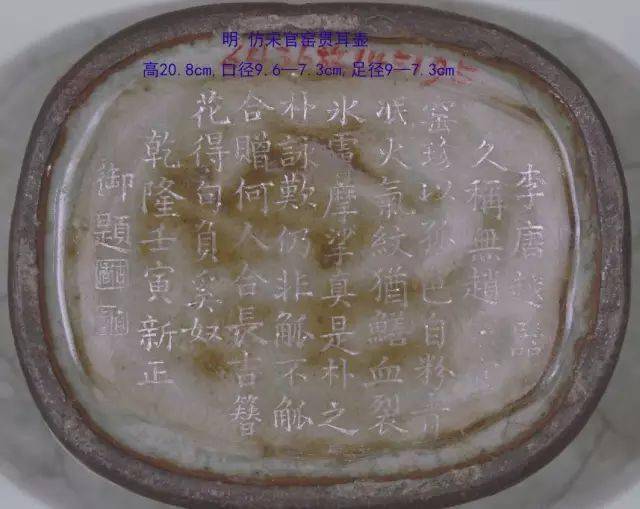 明 仿宋官窑贯耳壶
高20.8cm,口径9.6—7.3cm,足径9—7.3cm
李唐越器
久稱無趙
窑珍以孤色自粉青
泯火氣紋猶鱔血裂
氷雪摩挲真是朴之
朴詠歎仍非觚不觚
合贈何人合長吉簪
花得句負奚奴
乾隆壬寅新正
御題